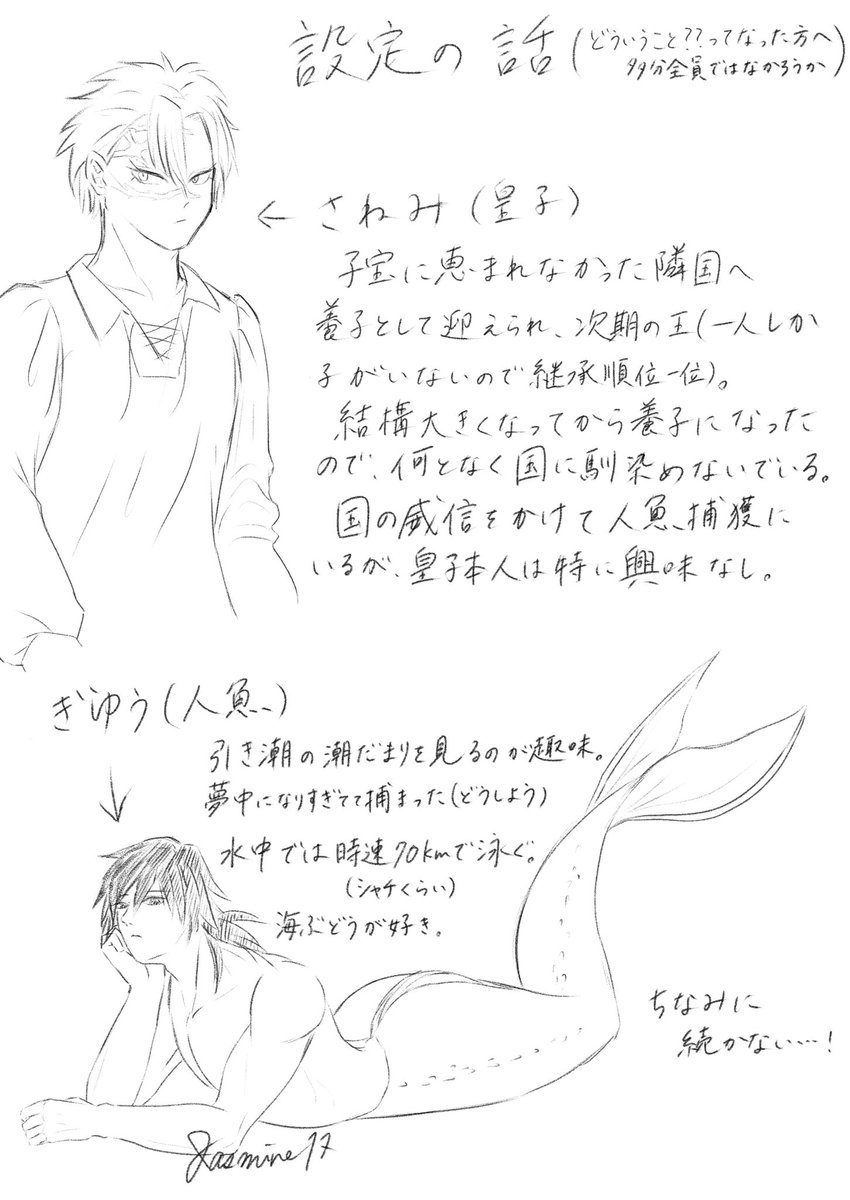 設定の話(どういうこと??ってなった方へ
多分全員ではなかろうか)
← さねみ(皇子)
子宝に恵まれなかった隣国へ
養子として迎えられ、次期の王(一人しか
子がいないので継承順位一位)。
結構大きくなってから養子になった
ので、何となく国に馴染めないでいる。
国の威信をかけて人魚捕獲に
いるが、皇子本人は特に興味なし。
ぎゆう(人魚)
引き潮の潮だまりを見るのが趣味。
夢中になりすぎてて捕まった(どうしよう)
水中では時速70kmで泳ぐ。
(シャチくらい)
海ぶどうが好き。
ちなみに
続かない…!
Jasmine17